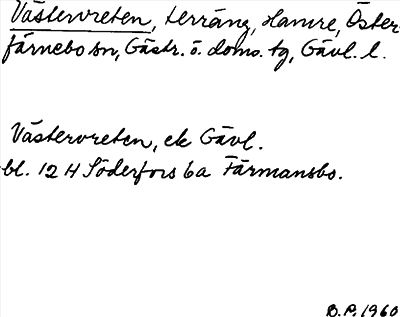 Västervreten, terräng, Hamre, Öster-
färnebo sn, Gästr. ö. doms. tg, Gävl. l.
Västervreten, ek Gävl.
bl. 12 H Söderfors 6a Färmansbo.
B.P. 1960